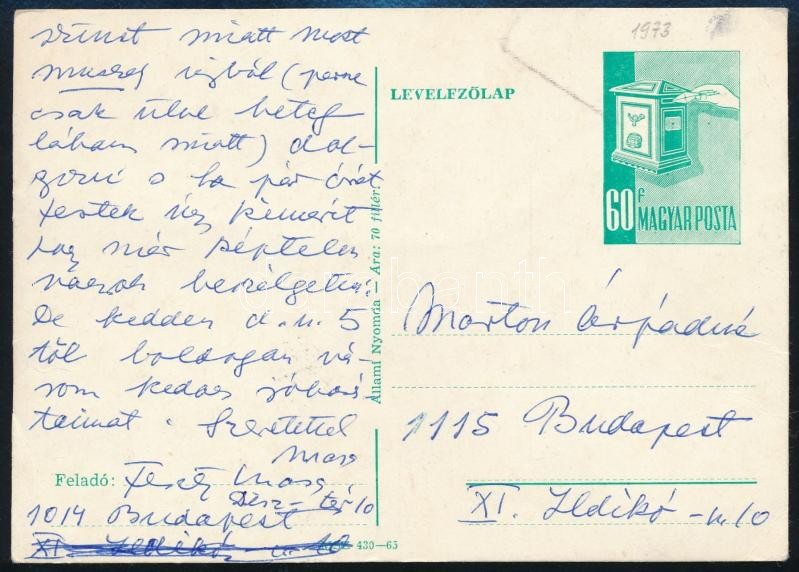 szünet miatt most
muszáj ágyból (persze
csak ülve beteg
lábam miatt) dol-
gozni s ha pár órát
festek úgy kimerít
hogy már képtelen
vagyok beszélgetni.
De kedden d.u. 5
től boldogan vá-
rom kedves jóbará-
taimat. Szeretettel
Masa
Feladó: Feszty Masa
Dísz-tér 10
1014 Budapest
XI. Ildikó u. 10
430—65
Állami Nyomda — Ára: 70 fillér.
1973
LEVELEZŐLAP
60 f MAGYAR POSTA
Márton Árpádné
1115 Budapest
XI. Ildikó-u. 10